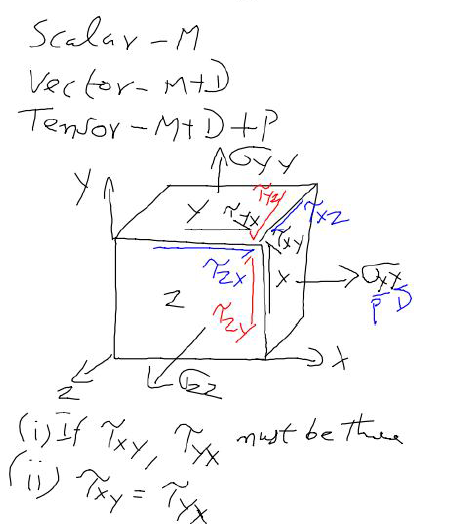 Scalar - M
Vector - M+D
Tensor - M+D+P
σyy
Y
τyz
Y τyx τxz
τxy
τzx X σxx
P D
Z τzy
X
Z σzz
(i) If τxy, τyx must be there
(ii) τxy = τyx